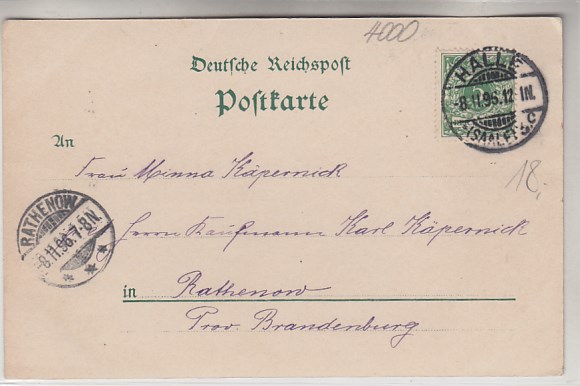 4000
Deutsche Reichspost
Postkarte
HALLE
-8.11.96.12-1N.
(SAALE) 2.c
An
Frau Minna Käpernick
18,
RATHENOW
-8.11.96.7-8N.
Herrn Kaufmann Karl Käpernick
in Rathenow
Prov. Brandenburg